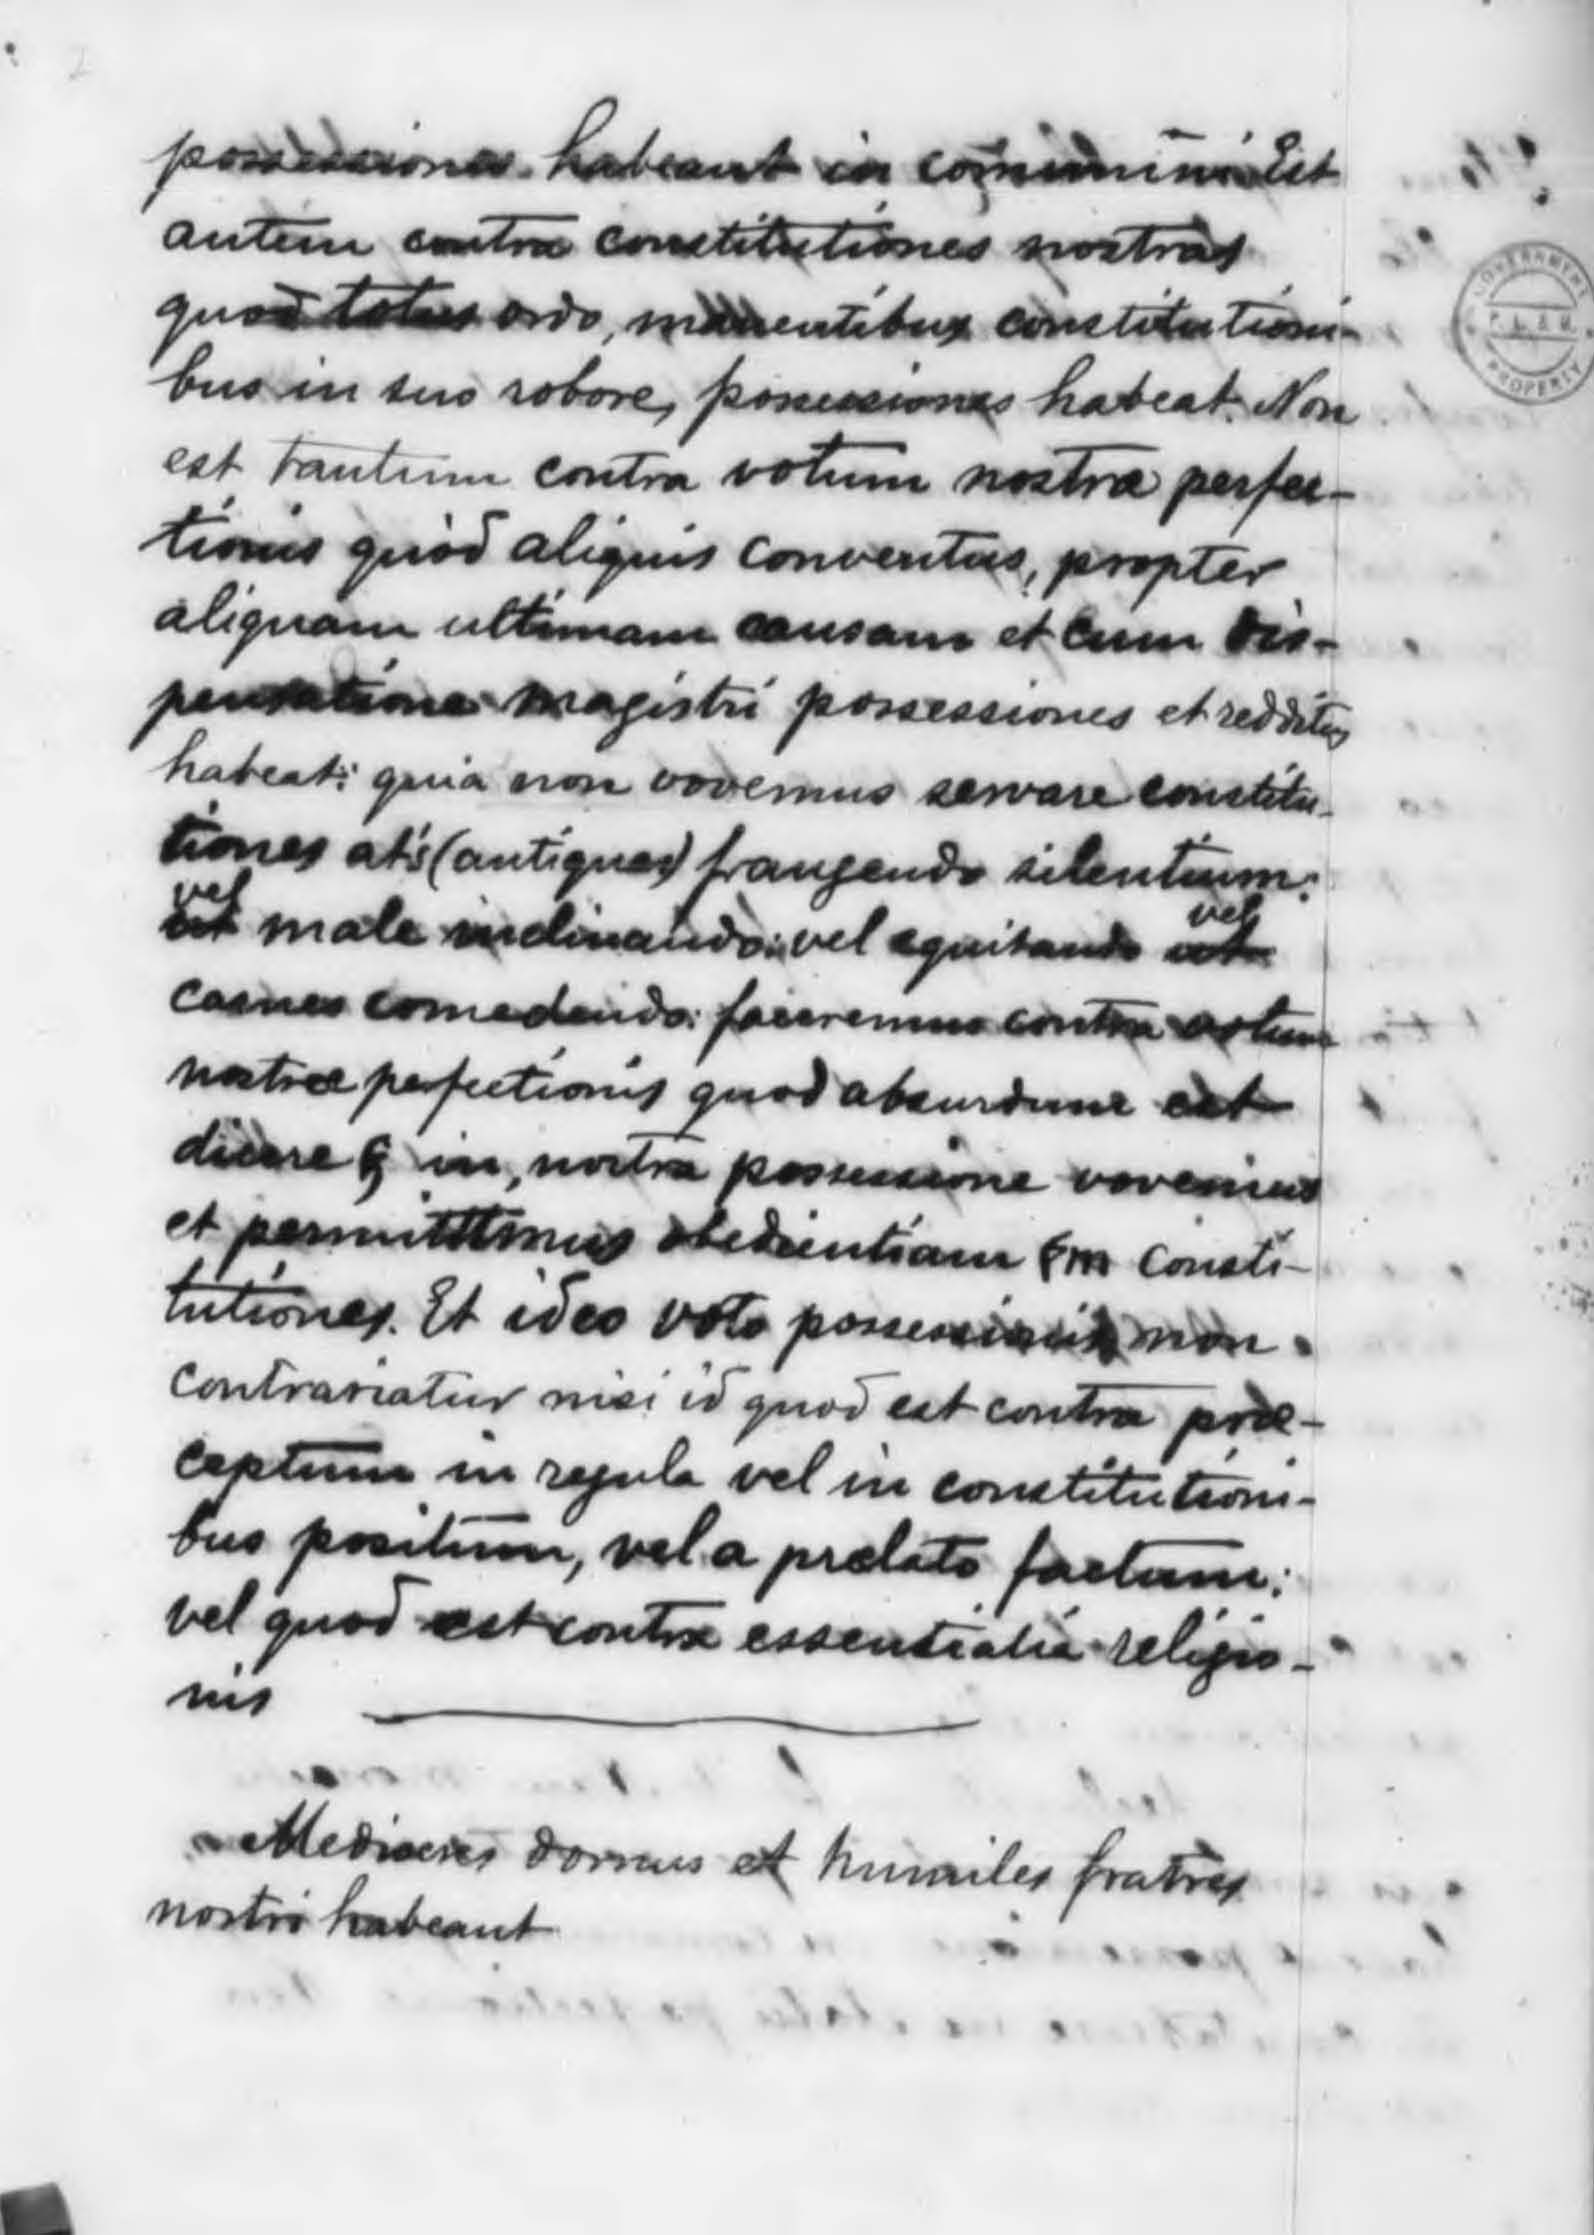 2
possessiones habeant in communi. Est
autem contra constitutiones nostras
quod totus ordo, manentibus constitutioni-
bus in suo robore, possessiones habeat. Non
est tantum contra votum nostræ perfec-
tionis quod aliquis conventus, propter
aliquam ultimam causam et cum dis-
pensatione magistri possessiones et redditus
habeat: quia non vovemus servare constitu-
tiones at's (antiques) frangendo silentium:
vel male inclinando: vel equitando vel
carnes comedendo: faceremus contra votum
nostræ perfectionis quod absurdum est
dicere q in, nostra possessione vovemus
et permittimus obedientiam sm consti-
tutiones. Et ideo voto possessionis non
contrariatur nisi id quod est contra præ-
ceptum in regula vel in constitutioni-
bus positum, vel a prælato factum;
vel quod est contra essentialia religio-
nis
Mediocres domus et humiles fratres
nostri habeant
GOVERNMENT
PROPERTY